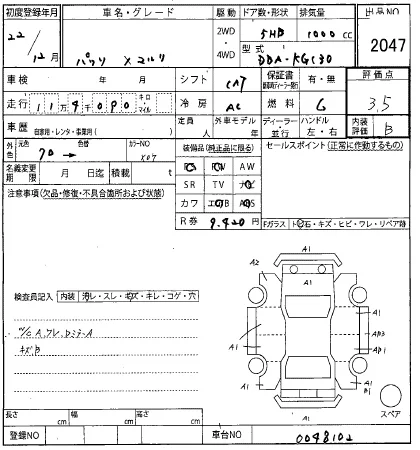 初度登録年月 車名・グレード 駆動 ドア数・形状 排気量 出品NO
22/12月 パッソ X ヨルリ 2WD・4WD 5HB 1000cc 2047
型式 DBA-KGC30
車検 年 月 シフト CAT 保証書 有・無 評価点
走行 11万4千090 キロ・マイル 冷房 AC 燃料 G 3.5
車歴 自家用・レンタ・事業用( ) 定員 人 外車モデル 年 ディーラー・並行 ハンドル 左・右 内装評価 B
外色 元色 70→ 色替 カラーNO X07 装備品(純正品に限る) セールスポイント(正常に作動するもの)
名義変更期限 月 日迄 積載 t
PS PW AW
SR TV ナビ
カワ エアB ABS
R券 9.420円
注意事項(欠品・修復・不具合箇所および状態)
Fガラス トビ石・キズ・ヒビ・ワレ・リペア跡
A1
A2
A1
検査員記入 内装 汚レ・スレ・キズ・キレ・コゲ・穴
A1
A1
AB3
AB1
A1
B1
A1
スペア
長さ cm 幅 cm 高さ cm
登録NO 車台NO 0048102